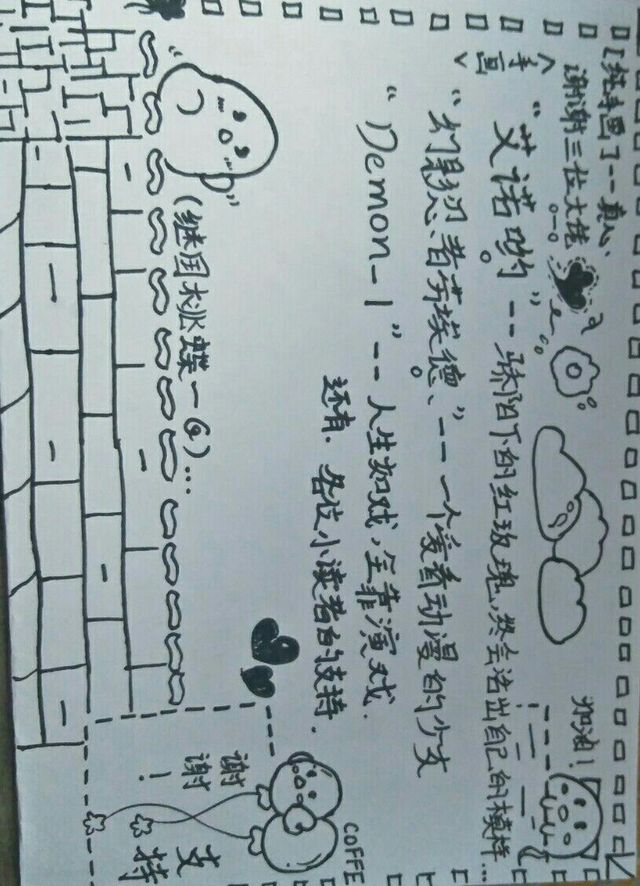 【纯手画了--真心、
谢谢三位大佬
<手画>
“艾诺哟”--骄阳下的红玫瑰，终会活出自己的模样...
“幻影忍者芬埃德、”--一个爱看动漫的少女
“Demon_1”--人生如戏，全靠演戏.
还有、各位小读者的支持.
加油!
(继国桃蝶一@)...
谢谢!
支持
COFFE